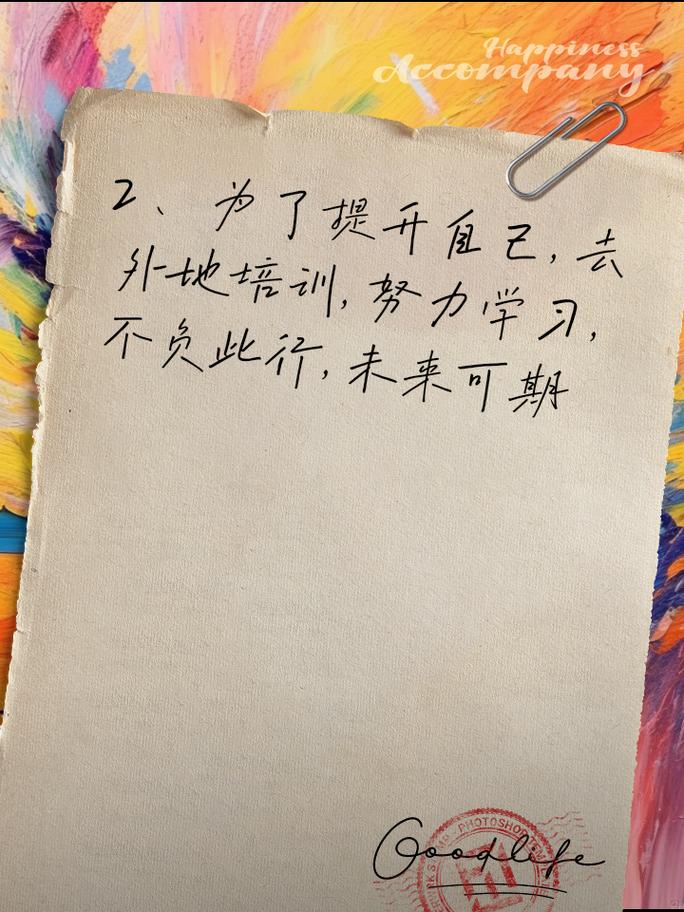 Happiness
Accompany
2、为了提升自己,去
外地培训,努力学习,
不负此行,未来可期
Goodlife
PHOTOSHOP